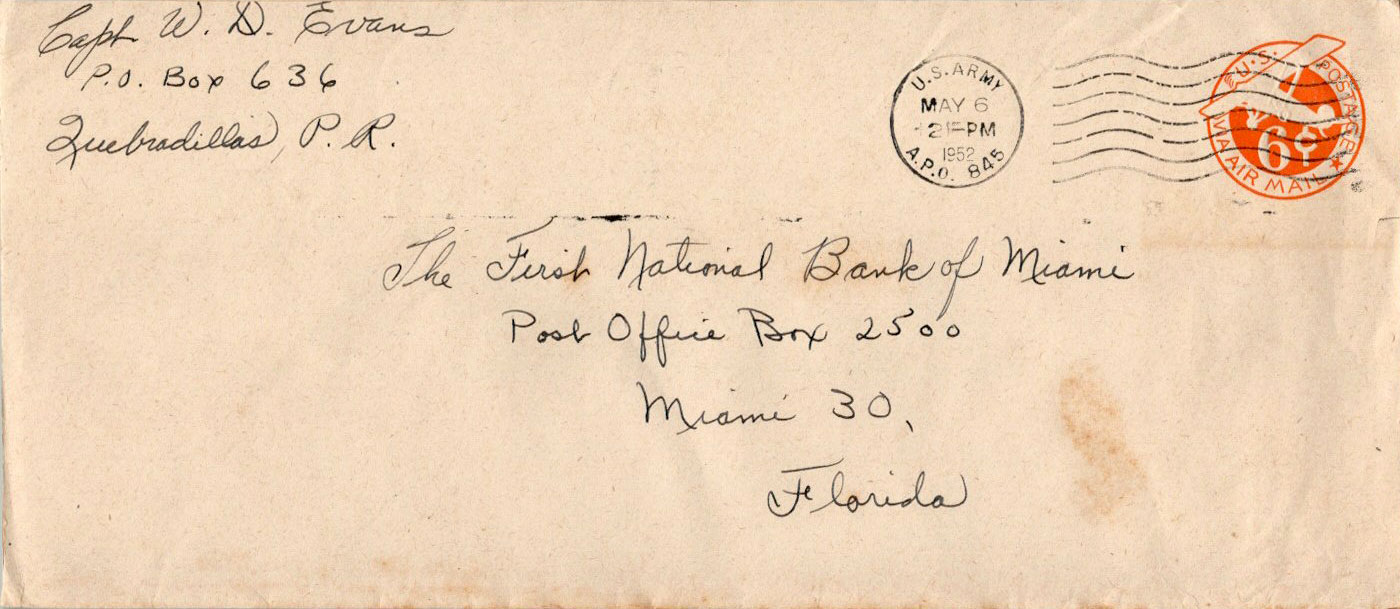 Capt. W. D. Evans
P.O. Box 636
Quebradillas, P. R.
U.S. ARMY
MAY 6
PM
1952
A.P.O. 845
U.S. POSTAGE
6¢
VIA AIR MAIL
The First National Bank of Miami
Post Office Box 2500
Miami 30,
Florida